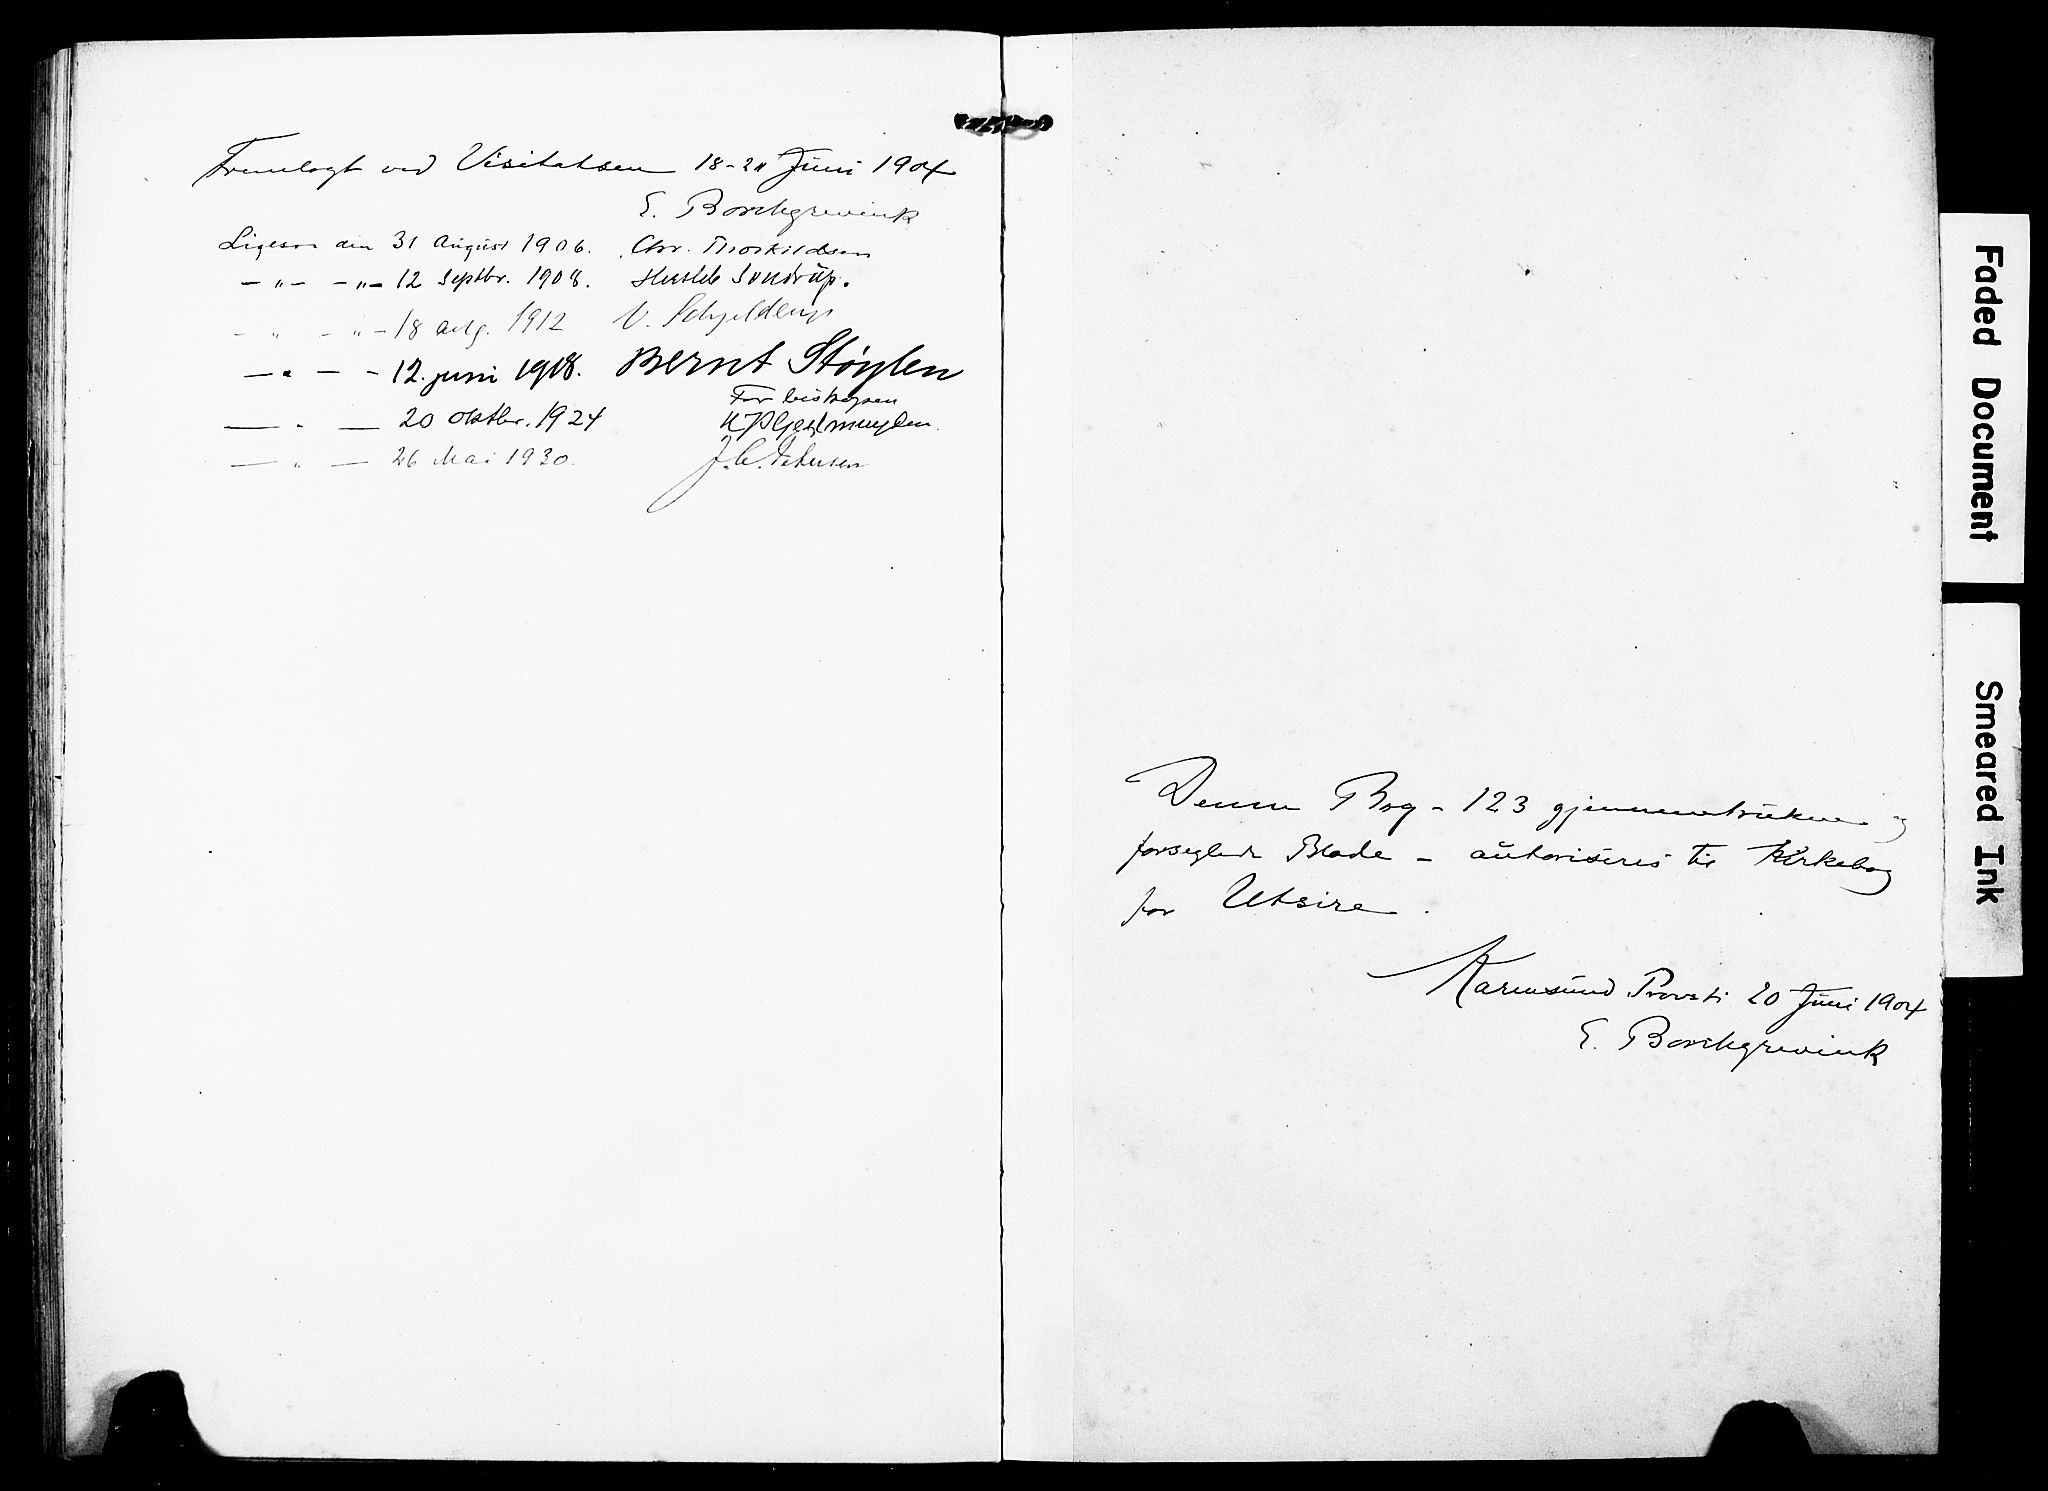 Fremlagt ved Visitatsen 18-20 Juni 1904
E. Borchgrevink
Ligesaa den 31 August 1906. Chr. Thorkildsen
-"- -"- 12 Septbr. 1908. Hersleb Sondrup.
- " - " - 18 aug. 1912 V. Schjelderup
- " - - 12. juni 1918. Bernt Støylen
For biskopen
- " - 20 Oktbr. 1924
- " - 26 Mai 1930. J. C. Petersen
Denne Bog - 123 gjennemtrukne og
forseglede Blade - autoriseres til Kirkebog
for Utsire.
Karmsund Provsti 20 Juni 1904
E. Borchgrevink
Faded Document
Smeared Ink